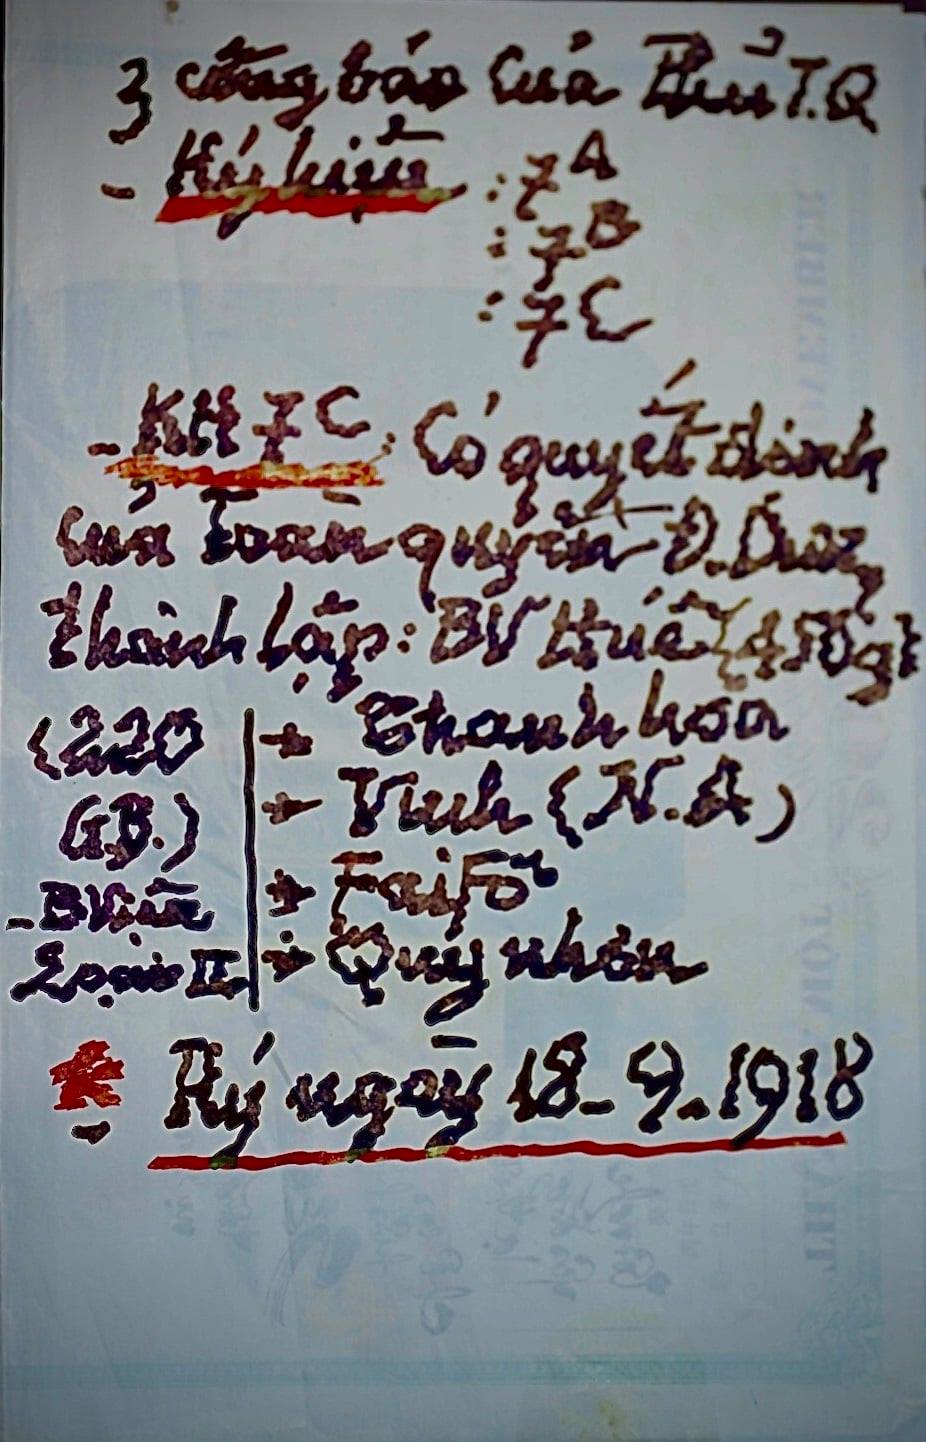 3 công báo của Phủ T.Q
- Ký hiệu : 7A
: 7B
: 7C
- KH 7C: Có quyết định
của Toàn quyền Đ. Dương
thành lập: BV Huế (450g)
(220
G.B.)
- BViện
Loại II
+ Thanh hóa
+ Vinh (N.A)
+ Faifo
+ Quy nhơn
* Ký ngày 18-9-1918